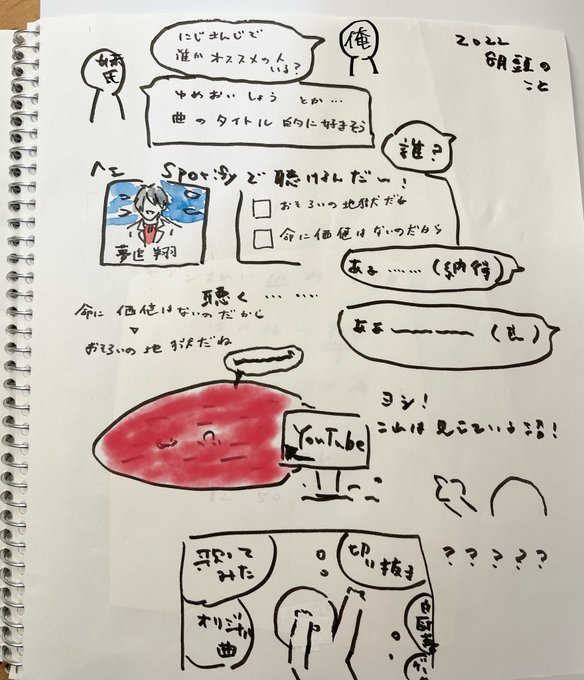 2022
初頭の
こと
俺
にじさんじで
誰かオススメの人
いる?
姉氏
ゆめおいしょう とか…
曲のタイトル的に好きそう
誰?
へェ Spotifyで聴けんだ〜!
夢追翔
おそろいの地獄だね
命に価値はないのだから
あぁ……(納得)
聴く……
命に価値はないのだから
おそろいの地獄だね
あぁーーーー(良)
YouTube
ヨシ!
これは見えている沼!
?????
歌って
みた
切り抜き
オリジナル
曲